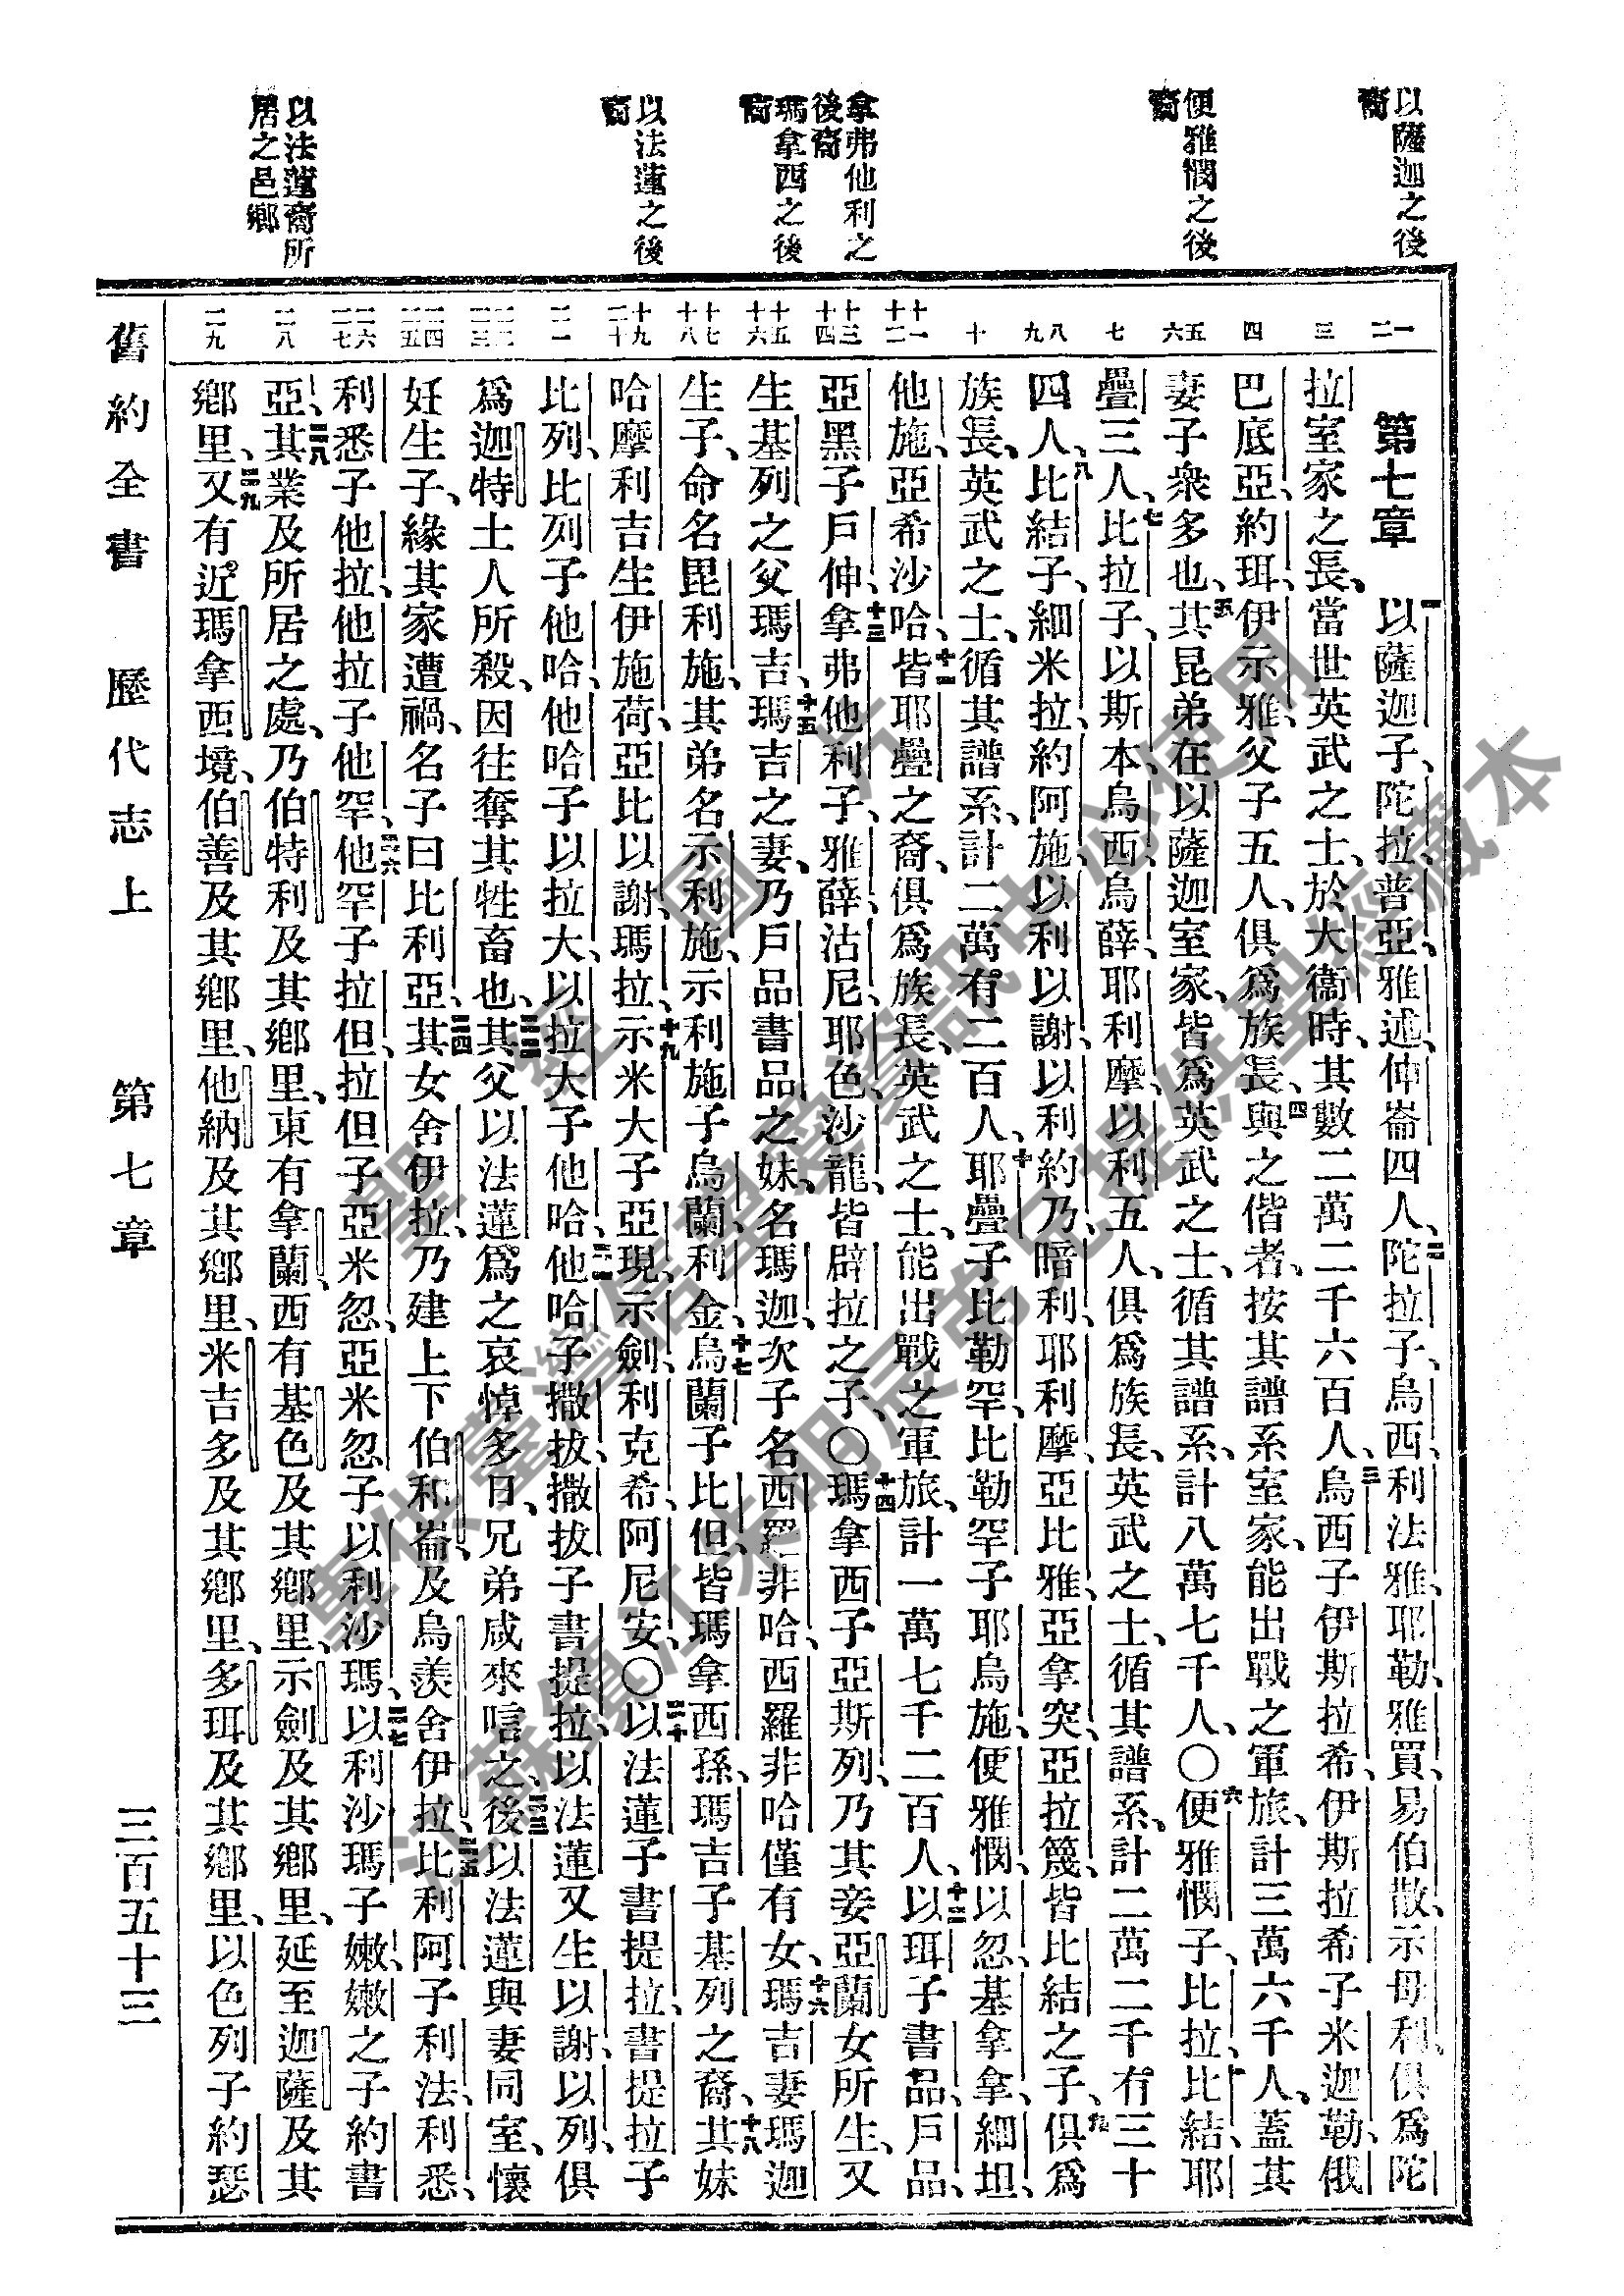 以薩迦之後
裔
便雅憫之後
裔
拿弗他利之
後裔
瑪拿西之後
裔
以法蓮之後
裔
以法蓮裔所
居之邑鄉
一 二 三 四 五 六 七 八 九 十 十一 十二 十三 十四 十五 十六 十七 十八 十九 二十 二一 二二 二三 二四 二五 二六 二七 二八 二九
第七章 一以薩迦子、陀拉、普亞、雅述、伸崙四人、二陀拉子、烏西、利法雅、耶勒、雅買、易伯散、示母利、俱爲陀
拉室家之長、當世英武之士、於大衞時、其數二萬二千六百人、三烏西子伊斯拉希、伊斯拉希子米迦勒、俄
巴底亞、約珥、伊示雅、父子五人、俱爲族長、四與之偕者、按其譜系室家、能出戰之軍旅、計三萬六千人、蓋其
妻子衆多也、五其昆弟在以薩迦室家、皆爲英武之士、循其譜系、計八萬七千人、〇六便雅憫子、比拉、比結、耶
疊三人、七比拉子、以斯本、烏西、烏薛、耶利摩、以利五人、俱爲族長、英武之士、循其譜系、計二萬二千有三十
四人、八比結子、細米拉、約阿施、以利以謝、以利約乃、暗利、耶利摩、亞比雅、亞拿突、亞拉篾、皆比結之子、九俱爲
族長、英武之士、循其譜系、計二萬有二百人、十耶疊子比勒罕、比勒罕子耶烏施、便雅憫、以忽、基拿拿、細坦、
他施、亞希沙哈、十一皆耶疊之裔、俱爲族長、英武之士、能出戰之軍旅、計一萬七千二百人、十二以珥子書品、戶品、
亞黑子戶伸、十三拿弗他利子、雅薛、沽尼、耶色、沙龍、皆辟拉之子、〇十四瑪拿西子亞斯列、乃其妾亞蘭女所生、又
生基列之父瑪吉、十五瑪吉之妻、乃戶品書品之妹、名瑪迦、次子名西羅非哈、西羅非哈僅有女、十六瑪吉妻瑪迦
生子、命名毘利施、其弟名示利施、示利施子烏蘭、利金、十七烏蘭子比但、皆瑪拿西孫、瑪吉子基列之裔、十八其妹
哈摩利吉生伊施荷、亞比以謝、瑪拉、十九示米大子亞現、示劍、利克希、阿尼安、〇二十以法蓮子書提拉、書提拉子
比列、比列子他哈、他哈子以拉大、以拉大子他哈、二一他哈子撒拔、撒拔子書提拉、以法蓮又生以謝、以列、俱
爲迦特土人所殺、因往奪其牲畜也、二二其父以法蓮、爲之哀悼多日、兄弟咸來唁之、二三後以法蓮與妻同室、懷
妊生子、緣其家遭禍、名子曰比利亞、二四其女舍伊拉、乃建上下伯和崙、及烏羨舍伊拉、二五比利阿子利法、利悉、
利悉子他拉、他拉子他罕、二六他罕子拉但、拉但子亞米忽、亞米忽子以利沙瑪、二七以利沙瑪子嫩、嫩之子約書
亞、二八其業及所居之處、乃伯特利及其鄉里、東有拿蘭、西有基色及其鄉里、示劍及其鄉里、延至迦薩及其
鄉里、二九又有近瑪拿西境、伯善及其鄉里、他納及其鄉里、米吉多及其鄉里、多珥及其鄉里、以色列子約瑟
舊約全書 歷代志上 第七章 三百五十三
聖經圖片
專供臺灣信望愛資訊中心使用
江蘇鎮江朱明辰弟兄提供聖經藏本